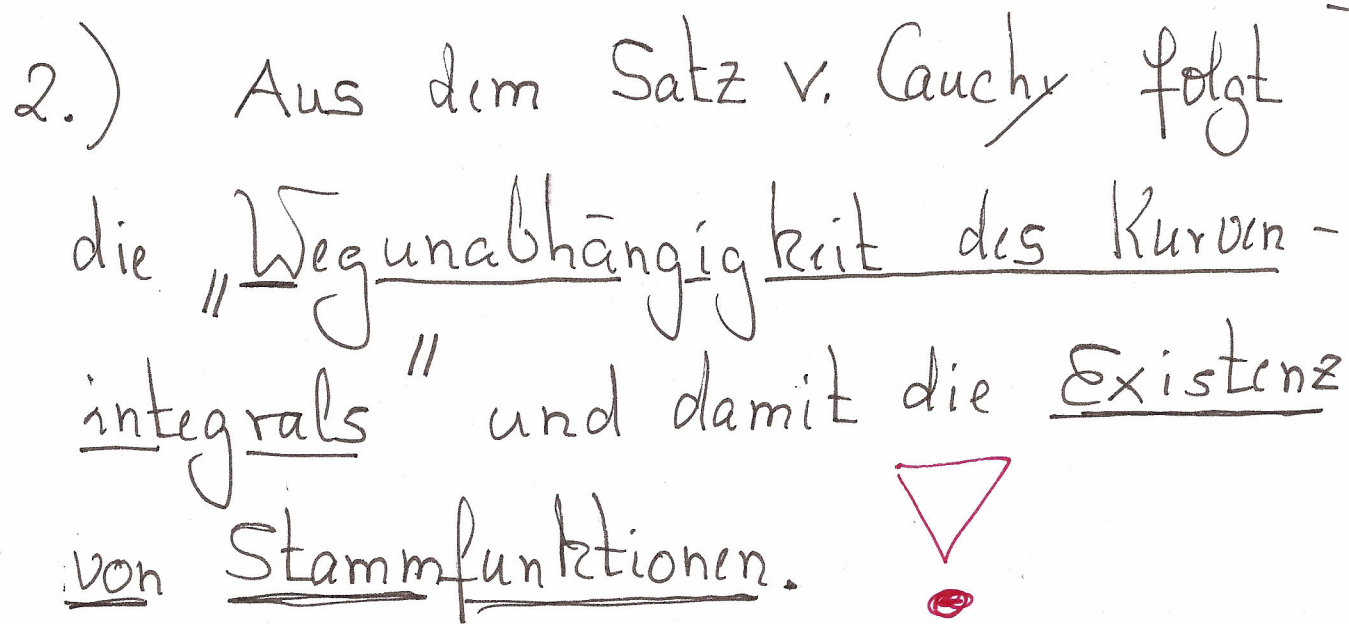 2.) Aus dem Satz v. Cauchy folgt
die „Wegunabhängigkeit des Kurven-
integrals" und damit die Existenz
von Stammfunktionen. !